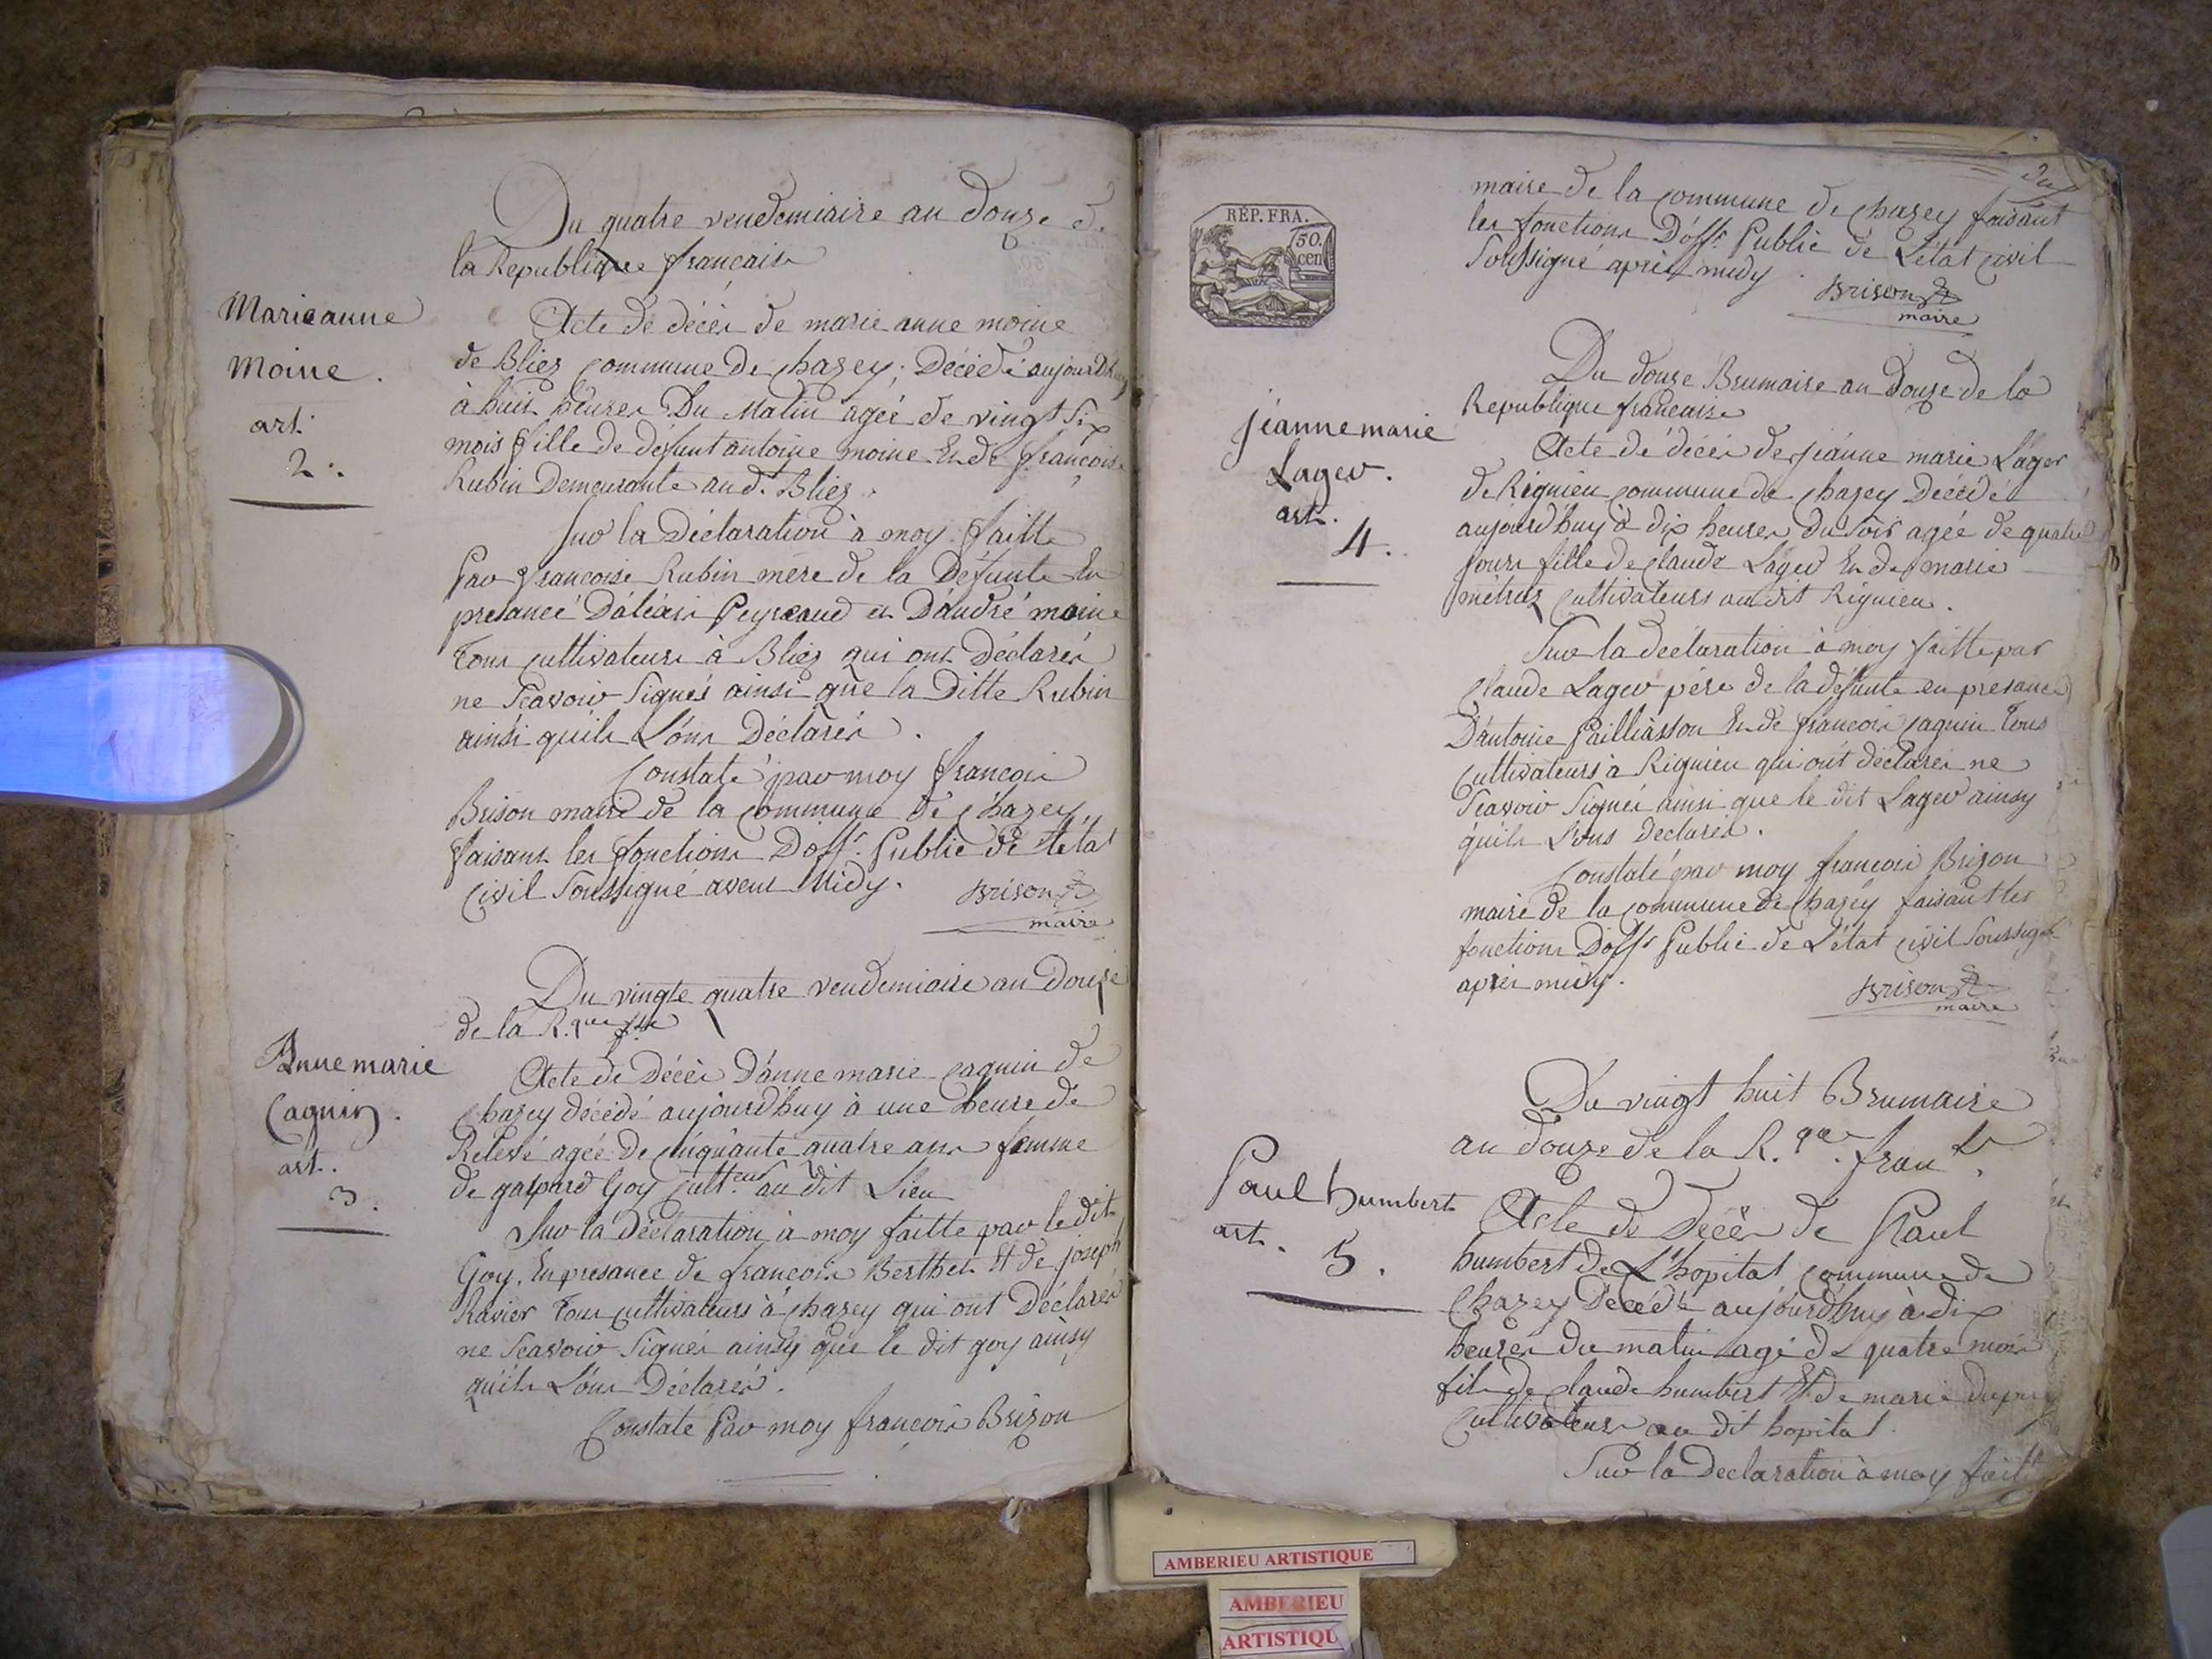 Du quatre vendemiaire an douze de
la Republique francaise
Marie anne
Moine.
art.
2.
Acte de décès de marie anne moine
de Blies commune de chazey; Décédé aujourdhuy
à huit heures Du Matin agée de vingt six
mois fille de défunt antoine moine Et de francoise
Rubin Demeurante aud. Blies.
Sur la Déclaration à moy faitte
Par francoise Rubin mere de la Défunte En
presance Daléxis Peyraud et Dandré moine
Tous cultivateurs à Blies qui ont Déclarés
ne Scavoir Signés ainsi que la Ditte Rubin
ainsi quils Lont Déclarés.
Constaté par moy francois
Brison maire de la commune de chazey
faisant les fonctions Doffr. Public de Létat
Civil Soussigné avent Midy. Brison
maire
Du vingte quatre vendemiaire an Douze
de la R.que fse
Anne marie
Caguin.
art.
3.
Acte de Décès D'anne marie caguin de
chazey décédé aujourdhuy à une heure de
Relevé agée De cinquante quatre ans femme
de gaspard Goy cultteur au dit Lieu
Sur la Déclaration à moy faitte par le dit
Goy. En presance de francois Berthet Et de joseph
Ravier Tous cultivateurs à chazey qui ont Déclarés
ne Scavoir Signés ainsy que le dit goy ainsy
quils Lont Déclarés.
Constaté Par moy francois Brison
RÉP. FRA.
50.
cen
maire de la commune de chazey faisant
les fonctions Doffr. Public de Létat civil
Soussigné après midy. Brison
maire
Du douze Brumaire an Douze de la
Republique francaise
jéanne marie
Lager.
art.
4.
Acte de décès de jéanne marie Lager
de Rignieu commune de chazey Décédé
aujourd'huy à dix heures du Soir agée de quatre
jours fille de claude Lager Et de marie
métraz cultivateurs au dit Rignieu.
Sur la déclaration à moy faitte par
claude Lager père de la défunte en presance
D'antoine Pailliasson Et de francois caguin Tous
cultivateurs à Rignieu qui ont déclarés ne
Scavoir Signés ainsi que le dit Lager ainsy
quils Lons declarés.
Constaté par moy francois Brison
maire de la commune de chazey faisant les
fonctions Doffr Public de Létat civil Soussigné
après midy. Brison
maire
Du vingt huit Brumaire
an douze de la R.que. franse.
Paul humbert
art. 5.
Acte de Décès de Paul
humbert de L'hopital commune de
Chazey Décédé aujourdhuy à dix
heures du matin agé de quatre mois
fils de claude humbert Et de marie dupuy
Cultivateurs au dit hopital.
Sur la Declaration à moy faitte
AMBERIEU ARTISTIQUE
AMBERIEU
ARTISTIQU